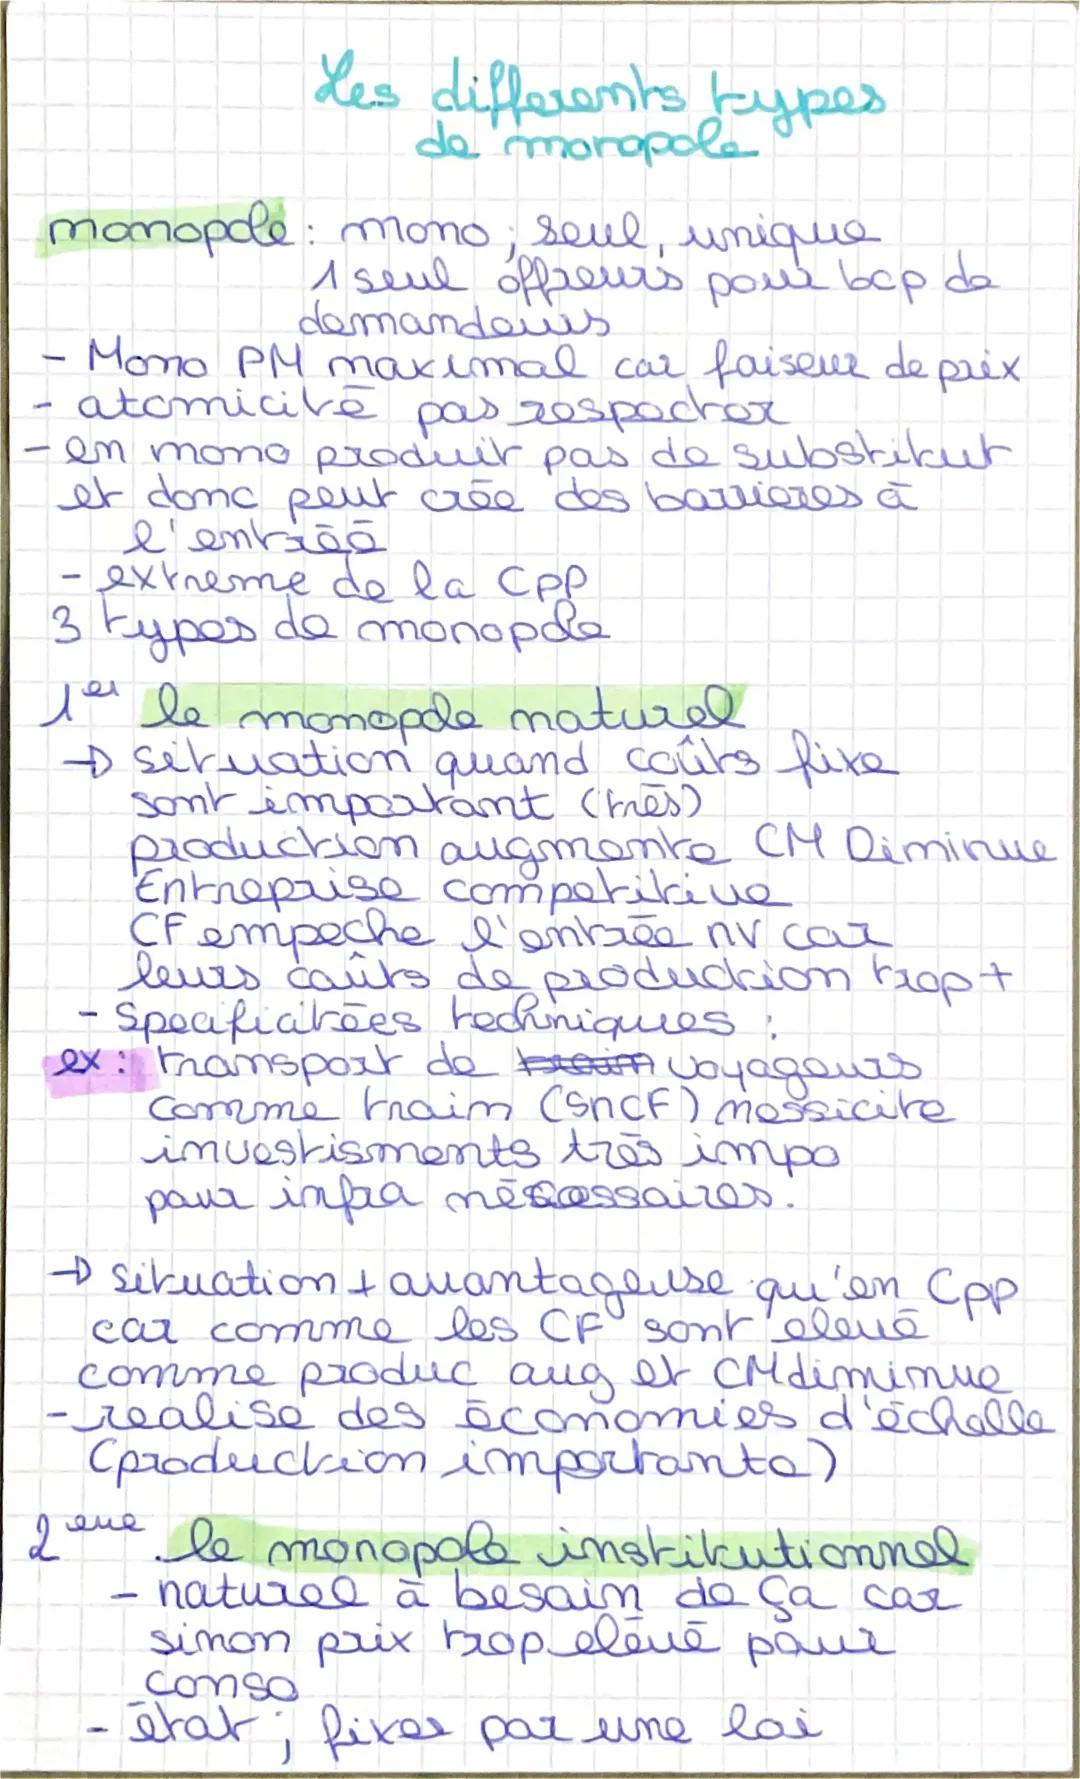 Les differents types
de monopole
monopole : mono ; seul, unique
1 seul offreurs pour bcp de
demandeurs
- Mono PM maximal car faiseur de prix
- atomicité pas respecter
- en mono produit pas de substitut
et donc peut crée des barrieres à
l'entrée
- extreme de la CPP
3 types de monopole
1er le monopole naturel
→ situation quand coûts fixe
sont important (très)
production augmente CM Diminue
Entreprise competitive
CF empeche l'entrée nv car
leurs coûts de production trop +
- Specificitées techniques :
ex : transport de train voyageurs
comme train (SNCF) nessicite
investisments très impo
pour infra nécessaires.
→ situation + avantageuse qu'en CPP
car comme les CF sont elevé
comme produc aug et CM diminue
- realise des économies d'échelle
(production importante)
2eme le monopole institutionnel
- naturel à besoin de ça car
sinon prix trop elevé pour
conso
- état ; fixer par une loi